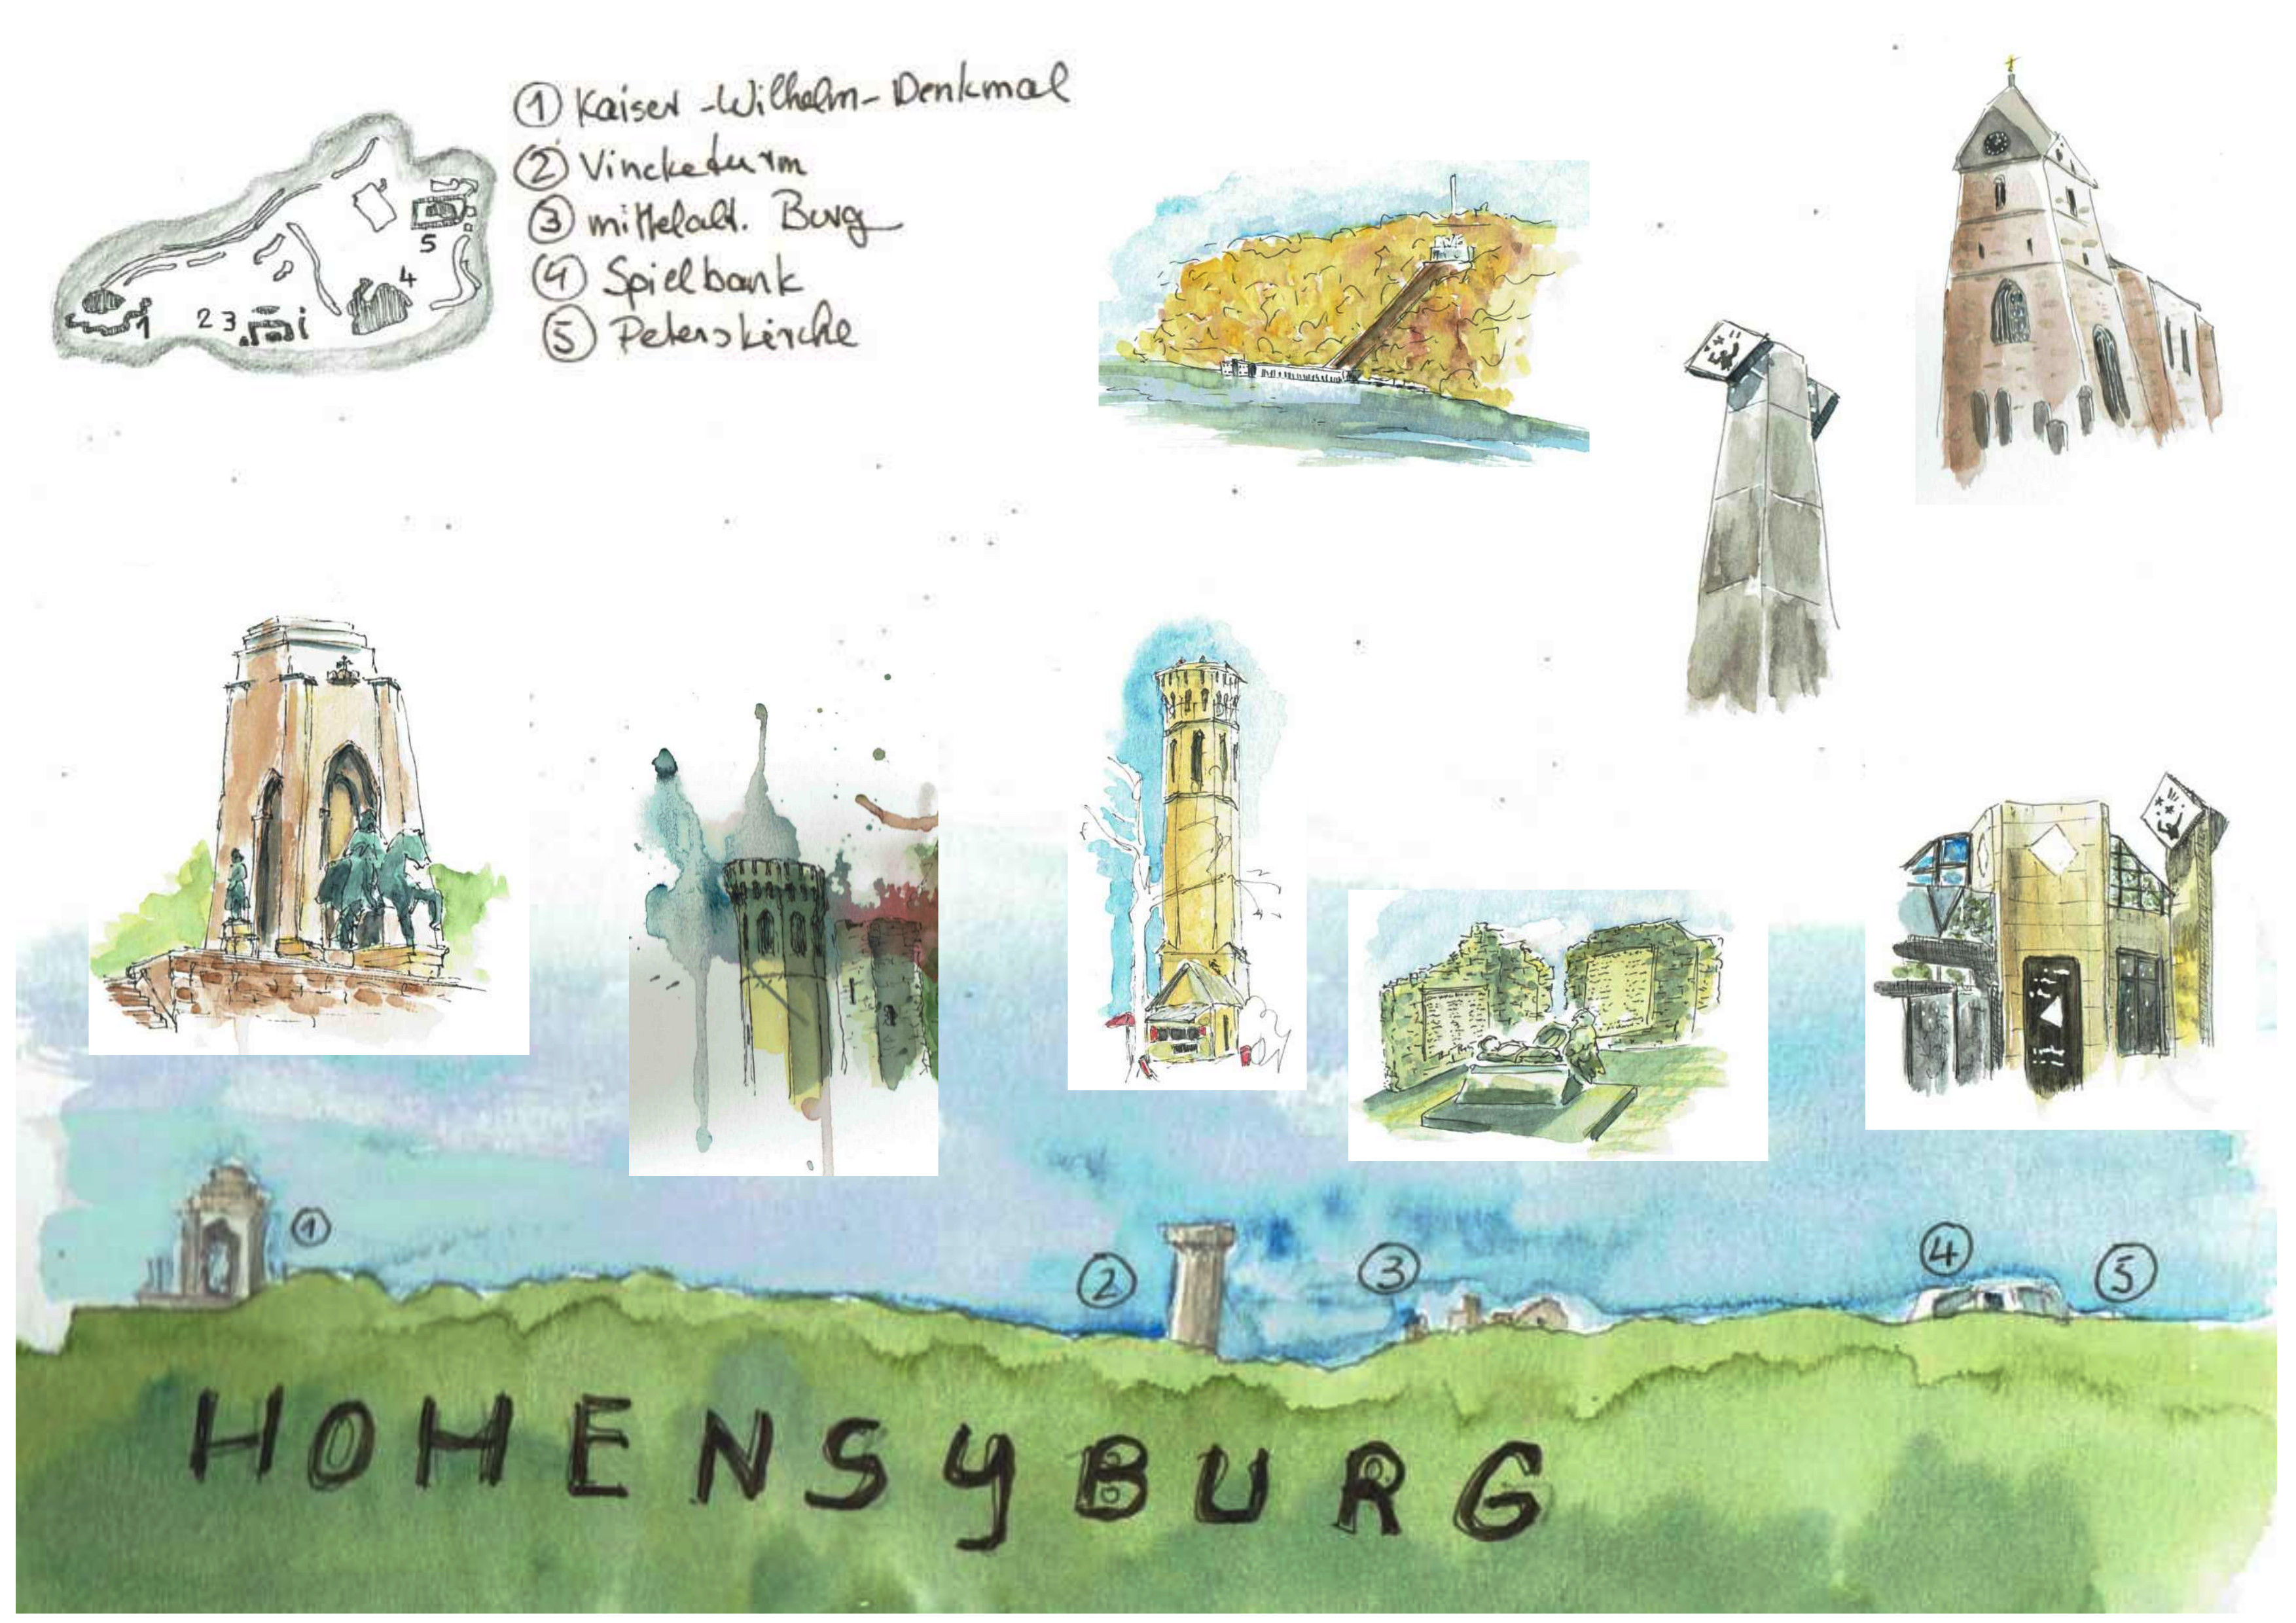 ① Kaiser-Wilhelm-Denkmal
② Vincketurm
③ mittelalt. Burg
④ Spielbank
⑤ Peterskirche
5
4
1 2 3
① ② ③ ④ ⑤
HOHENSYBURG